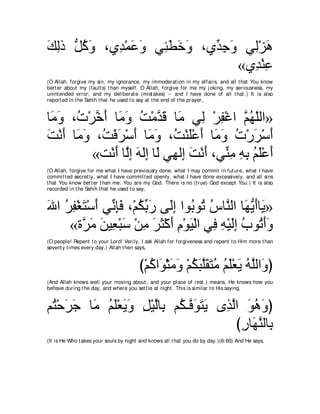 هَزْلِي وَجِدِّي، وَخَطَئِي وَعَمْدِي، وَكُلُّ ذَلِكَ
عِنْدِي»
(O Allah, forgive my sin, my ignorance, my immoderation in my affairs, and all that You know
better about my (faults) than myself. O Allah, forgive for me my joking, my seriousness, my
unintended error, and my deliberate (mistakes) -- and I have done of all that.) It is also
reported in the Sahih that he used to say at the end of the prayer,
«اللَّهُمَّ اغْفِرْ لِي مَا قَدَّمْتُ وَمَا أَخَّرْتُ، وَمَا
أَسْرَرْتُ وَمَا أَعْلَنْتُ، وَمَا أَسْرَفْتُ، وَمَا أَنْتَ
أَعْلَمُ بِهِ مِنِّي، أَنْتَ إِلهِي لَا إِلَهَ إِلَّا أَنْتَ»
(O Allah, forgive for me what I have previously done, what I may commit in future, what I have
committed secretly, what I have committed openly, what I have done excessively, and all sins
that You know better than me. You are my God. There is no (true) God except You.) It is also
recorded in the Sahih that he used to say,
«يَاأَيُّهَا النَّاسُ تُوبُوا إِلَى رَبِّكُمْ، فَإِنِّي أَسْتَغْفِرُ اللهَ
وَأَتُوبُ إِلَيْهِ فِي الْيَوْمِ أَكْثَرَ مِنْ سَبْعِينَ مَرَّةً»
(O people! Repent to your Lord! Verily, I ask Allah for forgiveness and repent to Him more than
seventy times every day.) Allah then says,
(وَاللَّهُ يَعْلَمُ مُتَقَلَّبَكُمْ وَمَثْوَاكُمْ)
(And Allah knows well your moving about, and your place of rest.) means, He knows how you
behave during the day, and where you settle at night. This is similar to His saying,
(وَهُوَ الَّذِى يَتَوَفَّـكُم بِالَّيْلِ وَيَعْلَمُ مَا جَرَحْتُم
بِالنَّهَارِ)
(It is He Who takes your souls by night and knows all that you do by day.)(6:60) And He says,